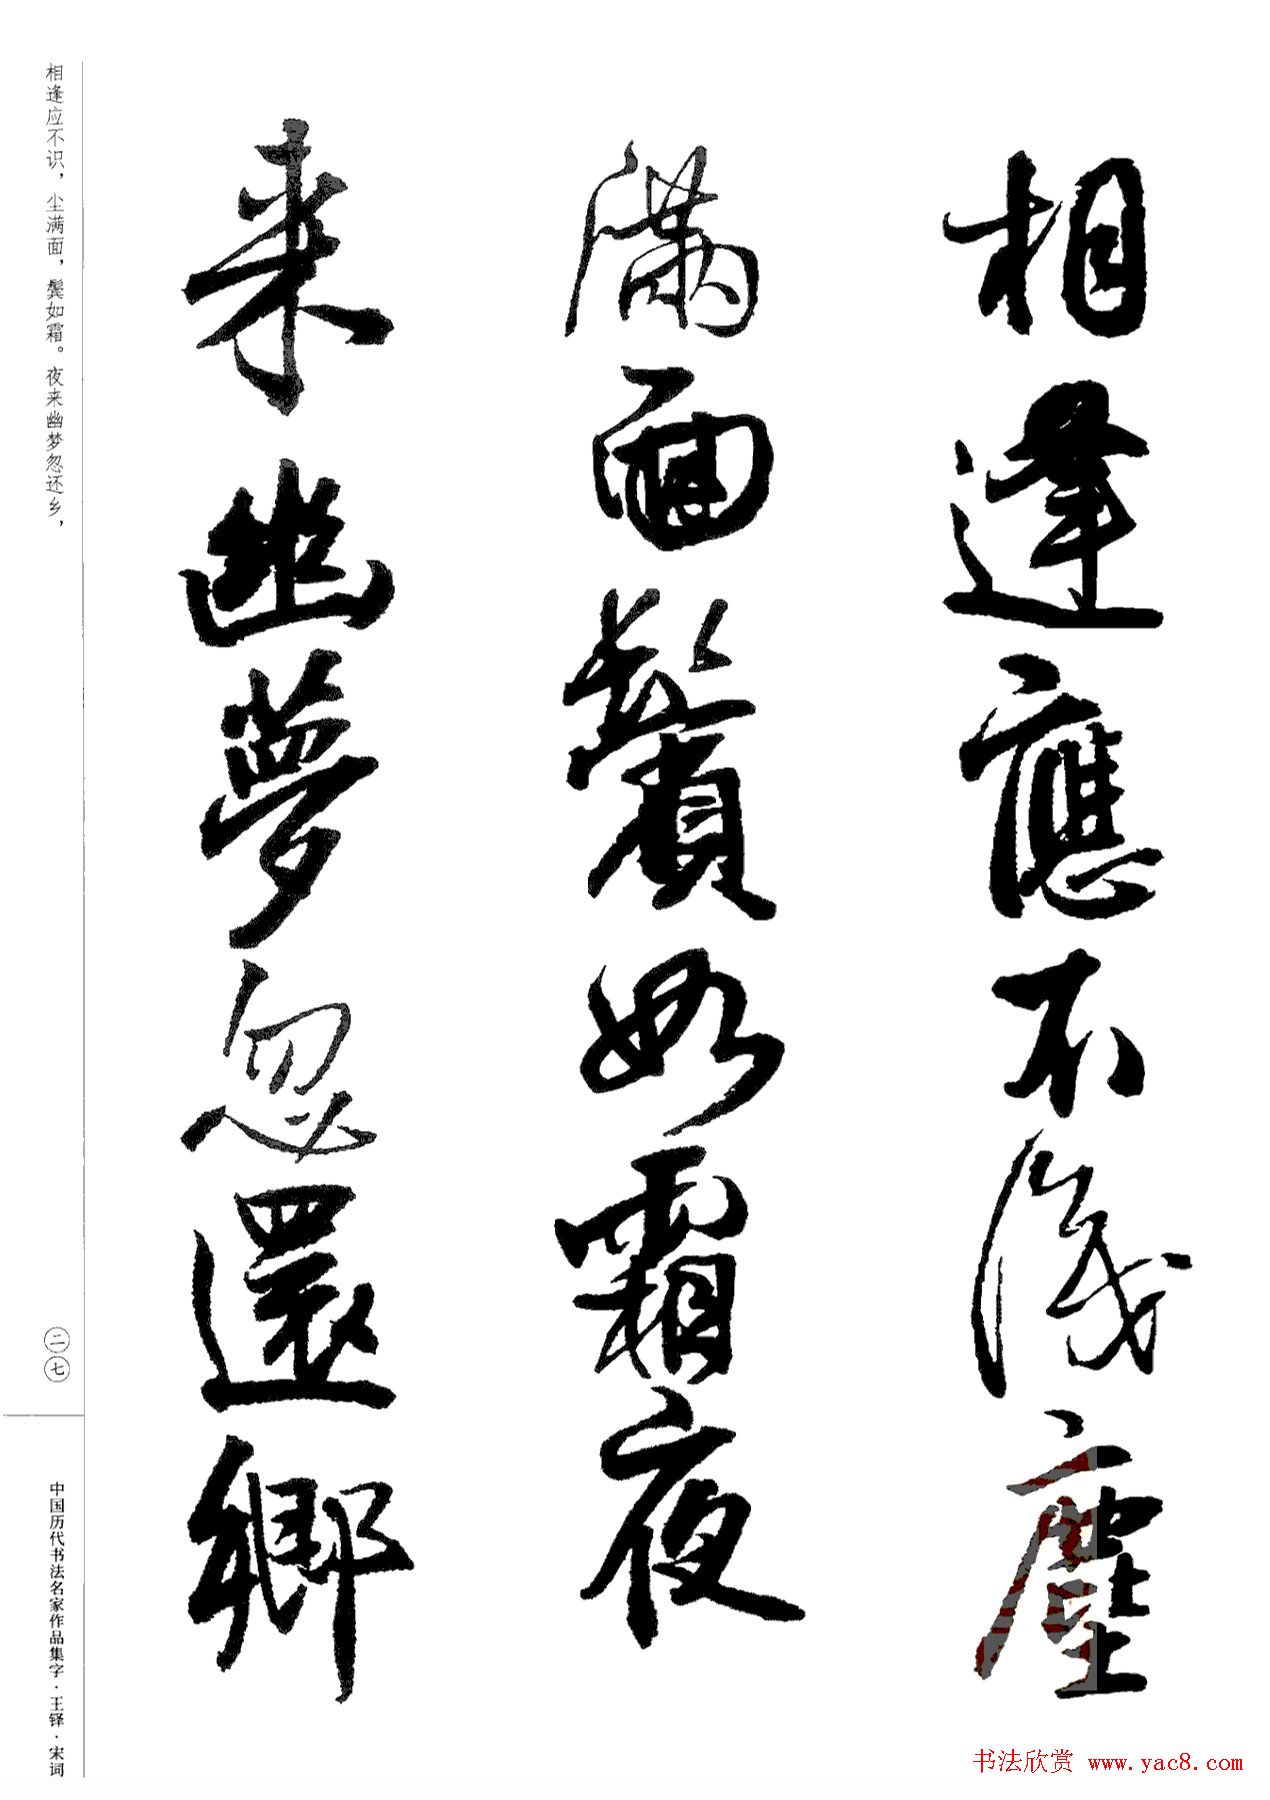 相逢應不識塵
滿面鬢如霜夜
來幽夢忽還鄉
相逢应不识，尘满面，鬓如霜。夜来幽梦忽还乡，
二七
中国历代书法名家作品集字·王铎·宋词
书法欣赏 www.yac8.com